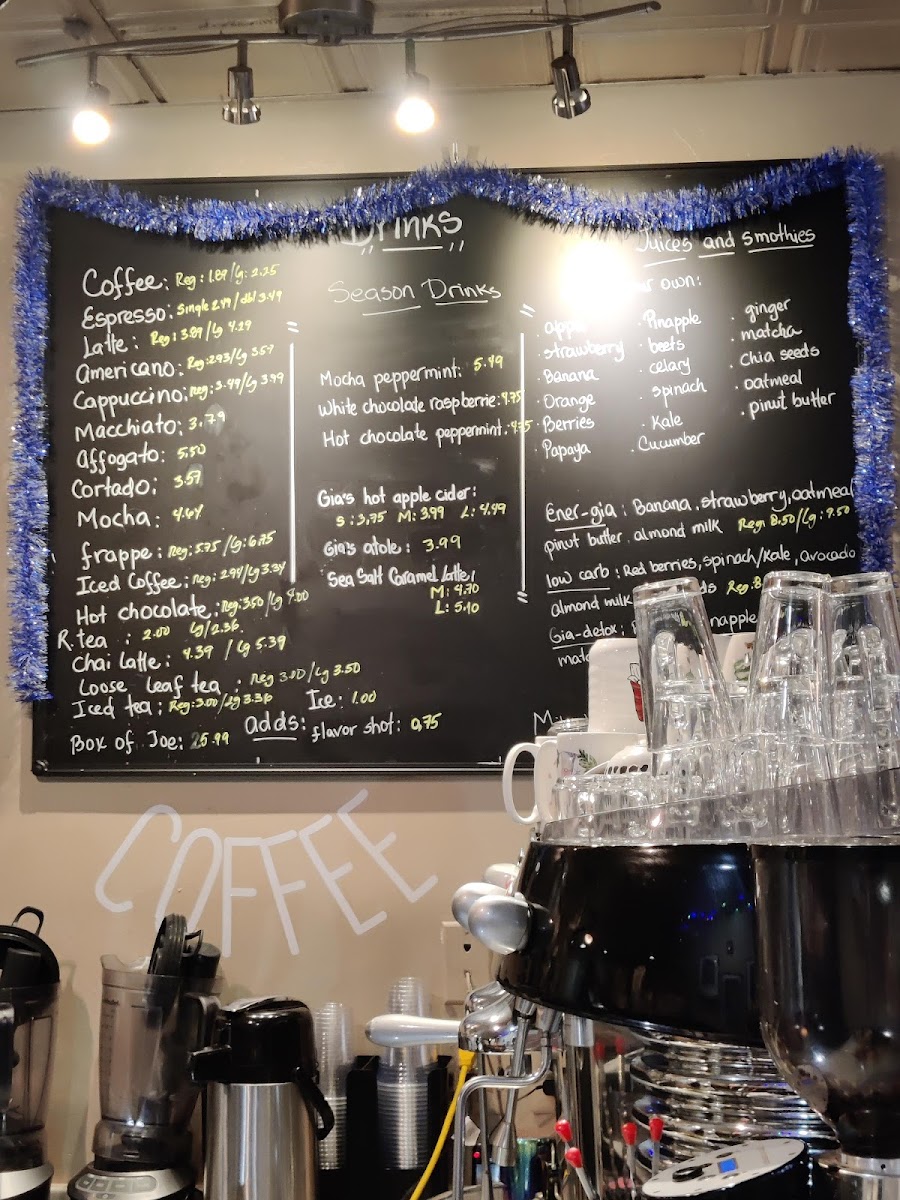 Drinks
Coffee: Reg: 1.89/Lg: 2.25
Espresso: Single 2.49/dbl 3.49
Latte: Reg: 3.89/Lg 4.29
Americano: Reg: 2.93/Lg 3.57
Cappuccino: Reg: 3.49/Lg 3.99
Macchiato: 3.79
Affogato: 5.50
Cortado: 3.57
Mocha: 4.64
frappe: Reg: 5.75/Lg: 6.75
Iced Coffee: Reg: 2.94/Lg 3.34
Hot chocolate: Reg: 3.50/Lg 4.00
R. tea : 2.00 Lg/2.36
Chai Latte: 4.39 / Lg 5.39
Loose leaf tea : Reg 3.00/Lg 3.50
Iced tea: Reg: 3.00/Lg 3.36
Box of Joe: 25.99
adds: Ice: 1.00
flavor shot: 0,75
Season Drinks
Mocha peppermint: 5.49
White chocolate raspberrie: 4.75
Hot chocolate peppermint: 4.75
Gia's hot apple cider:
S: 3,75 M: 3.99 L: 4.49
Gia's atole: 3.99
Sea Salt Caramel Latte,
M: 4.70
L: 5.10
Juices and smothies
own:
apple
strawberry
. Banana
. Orange
. Berries
. Papaya
. Pinapple
. beets
. celary
. spinach
. Kale
. Cucumber
. ginger
. matcha
. chia seeds
. oatmeal
. pinut butter
Ener-gia : Banana, strawberry, oatmeal
pinut butter, almond milk Reg: 8.50/Lg: 9.50
low carb : Red berries, spinach/Kale, avocado
almond milk Reg: 8
Gia-detox:
COFFEE